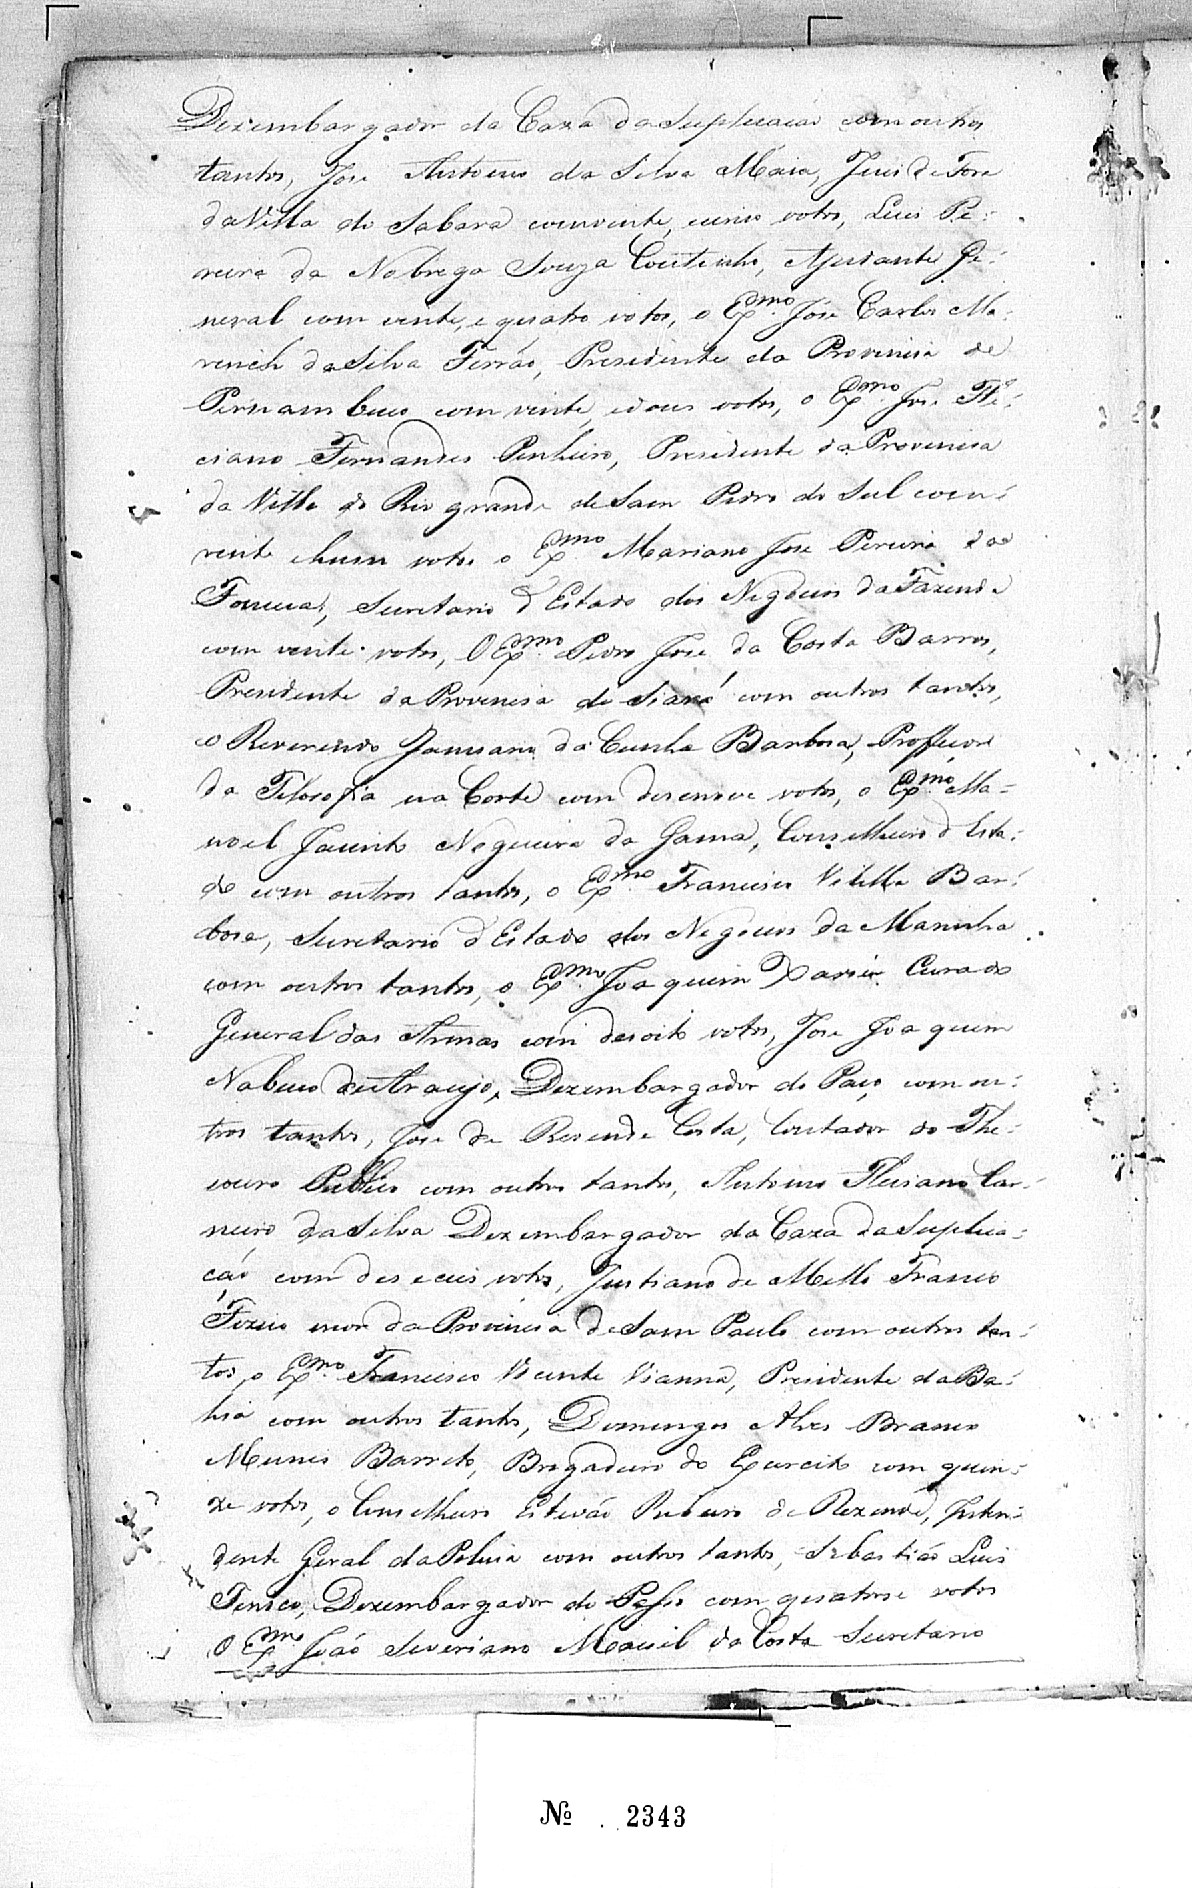 Dezembargador da Caza da Suplicacaõ com outros
tantos, Jose Antonio da Silva Maia, Juis de Fora
da Villa do Sabará com vinte, e cinco votos, Luis Pe-
reira da Nobrega Souza Coutinho, Ajudante Ge-
neral com vinte, e quatro votos, o Exmo. Jose Carlos Ma-
rench da Silva Ferrão, Presidente da Provincia de
Pernambuco com vinte, e dous votos, o Exmo. Jose Fe-
ciano Fernandes Pinheiro, Presidente da Provincia
da Villa do Rio grande de Sam Pedro do Sul com
vinte e hum votos o Exmo. Mariano Jose Pereira da
Fonceca, Secretario d'Estado dos Negocios da Fazenda
com vinte votos, O Exmo. Pedro Jose da Costa Barros,
Presidente da Provincia do Siará com outros tantos,
o Reverendo Januario da Cunha Barboza, Professor
da Filosofia na Corte com dezenove votos, o Exmo. Ma-
noel Jacinto Nogueira da Gama, Conselheiro d'Esta-
do com outros tantos, o Exmo. Francisco Villela Bar-
boza, Secretario d'Estado dos Negocios da Marinha
com outros tantos, o Exmo. Joaquim Xavier Curado
General das Armas com desoito votos, Jose Joaquim
Nabuco de Araujo, Dezembargador do Paço com ou-
tros tantos, Jose de Resende Costa, Contador do The-
souro Publico com outros tantos, Antonio Floriano Car-
neiro da Silva Dezembargador da Caza da Suplica-
cáo com des e ceis votos, Justiano de Mello Franco
Fizico mor da Provincia de Sam Paulo com outros tan-
tos, o Exmo. Francisco Vicente Vianna, Presidente da Ba-
hia com outros tantos, Domingos Alves Branco
Munis Barreto, Brigadeiro do Exercito com quin-
ze votos, o Conselheiro Estevão Ribeiro de Rezende, Inten-
dente Geral da Policia com outros tantos, Sebastião Luis
Tinoco, Dezembargador do Passo com quatorse votos
O Exmo. João Severiano Maciel da Costa Secretario
№ 2343